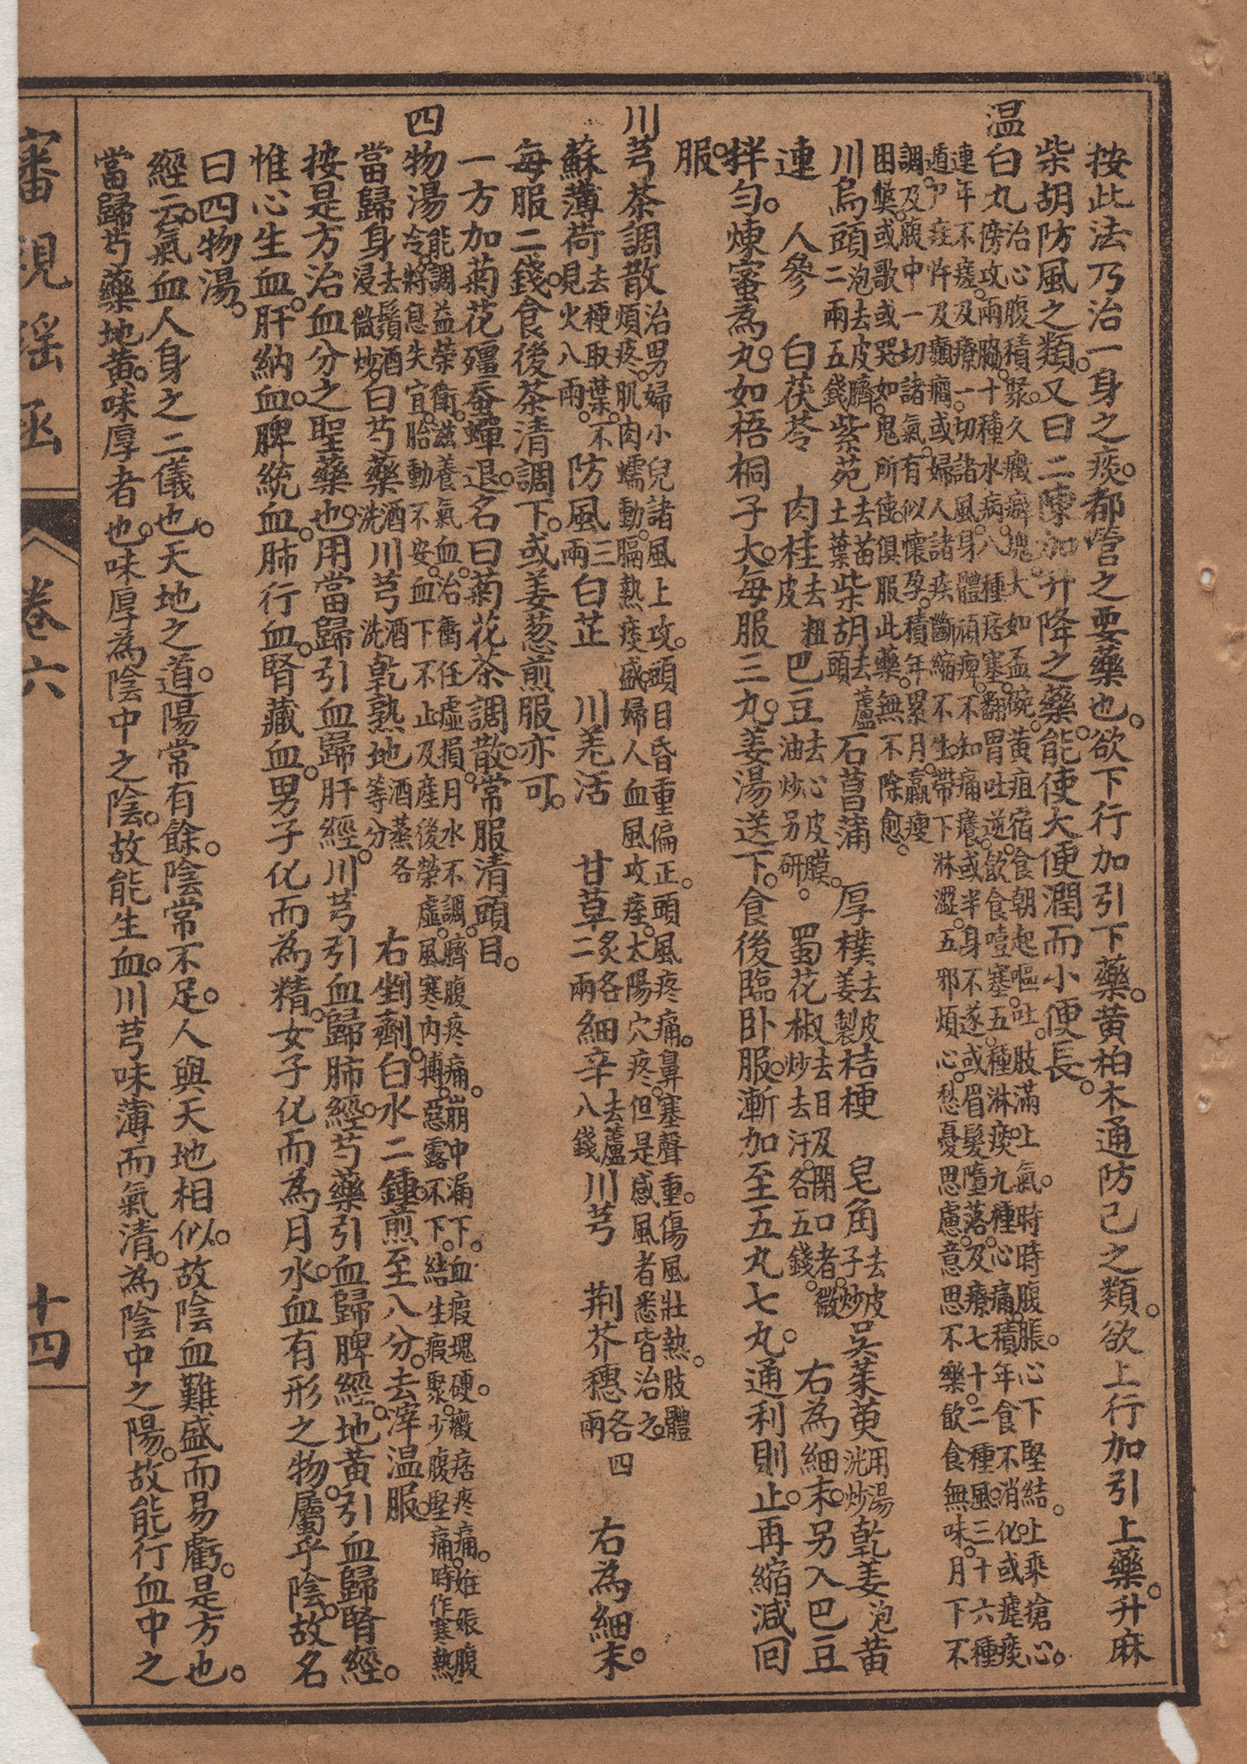 按此法乃治一身之痰。都管之要藥也。欲下行加引下藥。黃柏木通防己之類。欲上行加引上藥。升麻
柴胡防風之類。又曰二陳加升降之藥。能使大便潤而小便長。
温白丸
治心腹積聚。久癥癖塊。大如盃碗。黃疸宿食。朝起嘔吐。肢滿上氣。時時腹脹。心下堅結。上乘搶心。
傍攻兩脇。十種水病。八種痞塞。翻胃吐逆。飲食噎塞。五種淋疾。九種心痛。積年食不消化。或瘧疾
連年不瘥。及療一切諸風。身體頑痺。不知痛癢。或半身不遂。或眉髮墮落。及療七十二種風。三十六種
遁尸疰忤。及癲癇。或婦人諸疾。斷緒不生。帶下淋瀝。五邪煩心。愁憂思慮。意思不樂。飲食無味。月下不
調。及腹中一切諸氣。有似懷孕。積年累月。羸瘦
困獘。或歌或哭。如鬼所使。俱服此藥。無不除愈。
川烏頭二兩五錢泡去皮臍紫苑去苗土葉柴胡去蘆頭石菖蒲　厚樸去皮姜製桔梗　皂角去皮子炒吳茱萸用湯洗炒乾姜泡黃
連　人參　白茯苓　肉桂去粗皮巴豆去心皮膜。油炒另研。蜀花椒去目及閉口者。微炒去汗。各五錢。　右為細末。另入巴豆
拌匀。煉蜜為丸。如梧桐子大。每服三丸。姜湯送下。食後臨卧服。漸加至五丸七丸。通利則止。再縮減回
服。
川芎茶調散
治男婦小兒諸風上攻。頭目昏重。偏正頭風疼痛。鼻塞聲重。傷風壯熱。肢體
煩疼。肌肉蠕動。膈熱痰盛。婦人血風攻疰。太陽穴疼。但是感風者悉皆治之。
蘇薄荷去梗取葉。不見火八兩。防風三兩白芷　川羌活　甘草炙各二兩細辛去蘆八錢川芎　荆芥穗各四兩　右為細末。
每服二錢。食後茶清調下。或姜葱煎服亦可。
一方加菊花殭蚕蟬退。名曰菊花茶調散。常服清頭目。
四物湯
能調益榮衛。滋養氣血。治衝任虛損。月水不調。臍腹疼痛。崩中漏下。血瘕塊硬。癥痞疼痛。姙娠腹
冷。將息失宜。胎動不安。血下不止。及産後榮虛。風寒內搏。惡露不下。結生瘕聚。少腹堅痛。時作寒熱。
當歸身去鬚酒浸微炒白芍藥酒洗川芎酒洗乾熟地酒蒸各等分。　右剉劑。白水二鍾。煎至八分。去滓温服。
按是方治血分之聖藥也。用當歸引血歸肝經。川芎引血歸肺經。芍藥引血歸脾經。地黃引血歸腎經。
惟心生血。肝納血。脾統血。肺行血。腎藏血。男子化而為精。女子化而為月水。血有形之物。屬乎陰。故名
曰四物湯。
經云。氣血人身之二儀也。天地之道。陽常有餘。陰常不足。人與天地相似。故陰血難盛而易虧。是方也。
當歸芍藥地黃。味厚者也。味厚為陰中之陰。故能生血。川芎味薄而氣清。為陰中之陽。故能行血中之
審視瑤函　卷六　十四